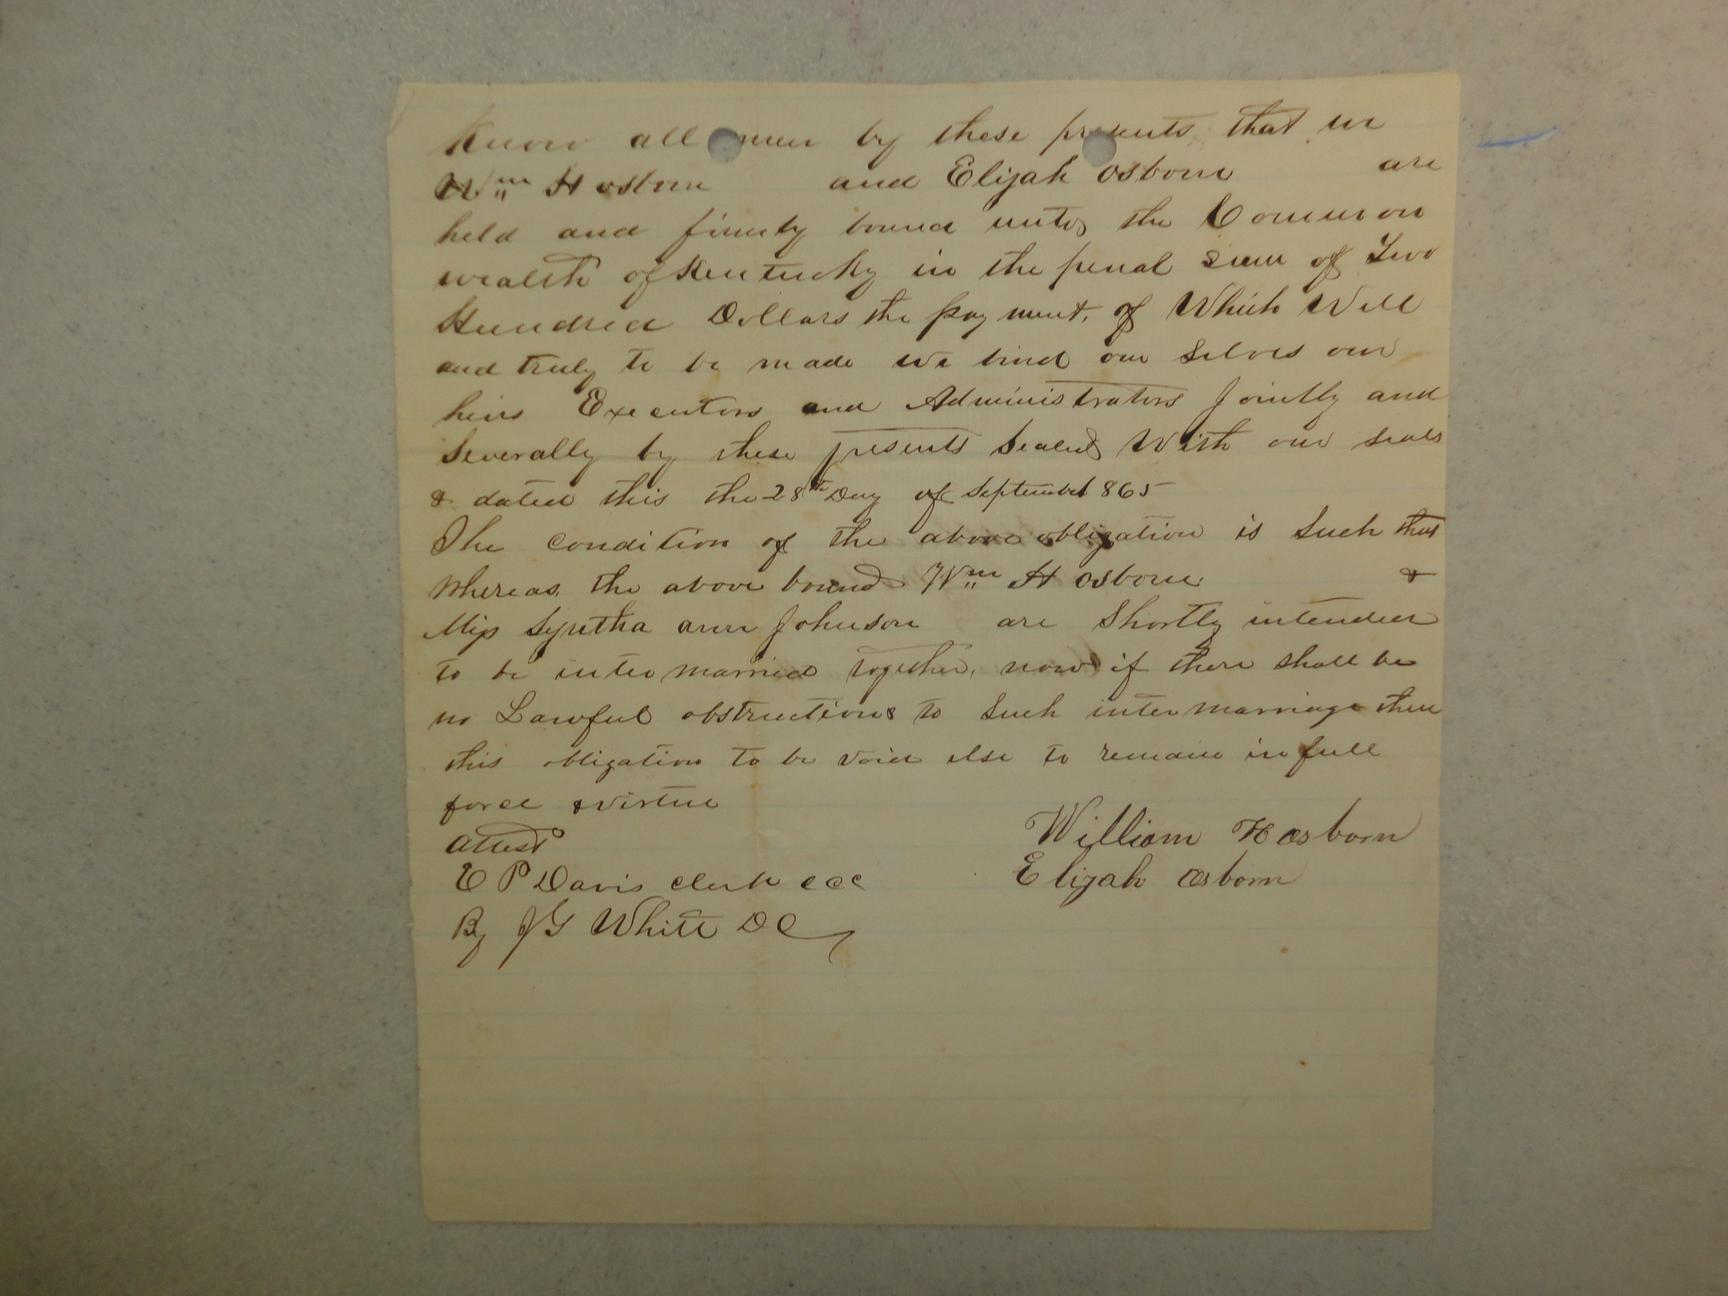 Know all men by these presents that we
Wm H osborn and Elijah osborn are
held and firmly bound unto the Common
wealth of Kentucky in the penal sum of Two
Hundred Dollars the pay ment, of Which Well
and truly to be made we bind our selves our
heirs Executors and Administrators Jointly and
Severally by these presents Sealed With our seals
& dated this the 28th Day of September 1865
The condition of the above obligation is Such that
Whereas, the above bound Wm H osborn &
Miss Syntha ann Johnson are Shortly intended
to be inter married together, now if there shall be
no Lawful obstructions to Such inter marriage then
this obligation to be void else to remain in full
force & virtue
attest
William H osborn
E P Davis Clerk CCC
Elijah osborn
By JG White DC